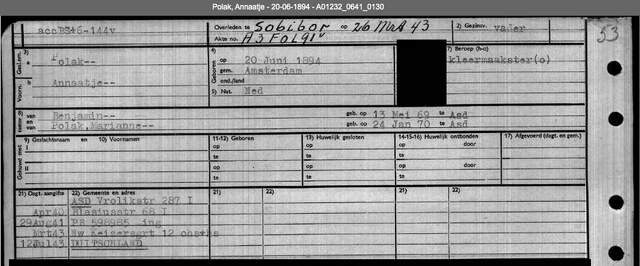 Polak, Annaatje - 20-06-1894 - A01232_0641_0130
Overleden te Sobibor op 26 Mrt 43 2) Gezinsv. vader
Akte no. A3 FOL91v
53
Geslen. 3) Polak-- 4) op 20 Juni 1894 7) Beroep (h-o)
gem. Amsterdam kleermaakster(o)
Voorn. Annaatje-- Geboren ond./land
5) Nat. Ned
van Benjamin-- geb. op 13 Mei 69 te Asd
en van Polak, Marianne-- geb. op 24 Jan 70 te Asd
9) Geslachtsnaam en 10) Voornamen 11-12) Geboren 13) Huwelijk gesloten 14-15-16) Huwelijk ontbonden 17) Afgevoerd (dagt. en gem.)
Gehuwd met I op op op door
te te te
II op op op door
te te te
21) Dagt. aangifte 22) Gemeente en adres 21) 22) 21) 22)
ASD Vrolikstr 287 I
Apr40 Blasiusstr 68 I
29Aug41 PB 598985 ing
Mrt43 Nw Keizersgrt 12
12Jul43 DUITSCHLAND